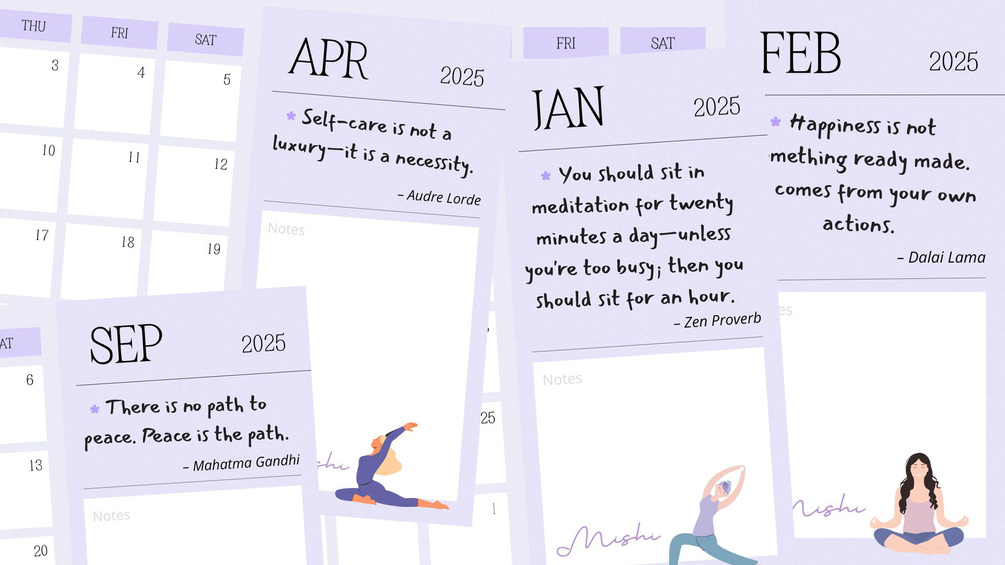 THU FRI SAT
3 4 5
10 11 12
17 18 19
APR 2025
* Self-care is not a
luxury—it is a necessity.
– Audre Lorde
Notes
25
1
6
13
20
SEP 2025
* There is no path to
peace. Peace is the path.
– Mahatma Gandhi
Notes
FRI SAT
JAN 2025
* You should sit in
meditation for twenty
minutes a day—unless
you're too busy; then you
should sit for an hour.
– Zen Proverb
Notes
Mishi
FEB 2025
* Happiness is not
mething ready made.
comes from your own
actions.
– Dalai Lama
es
Mishi